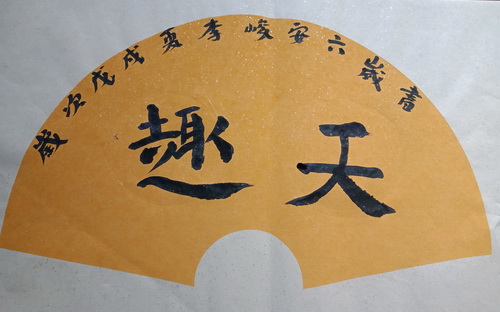 天趣
歲次戊戌夏李峻安六歲書